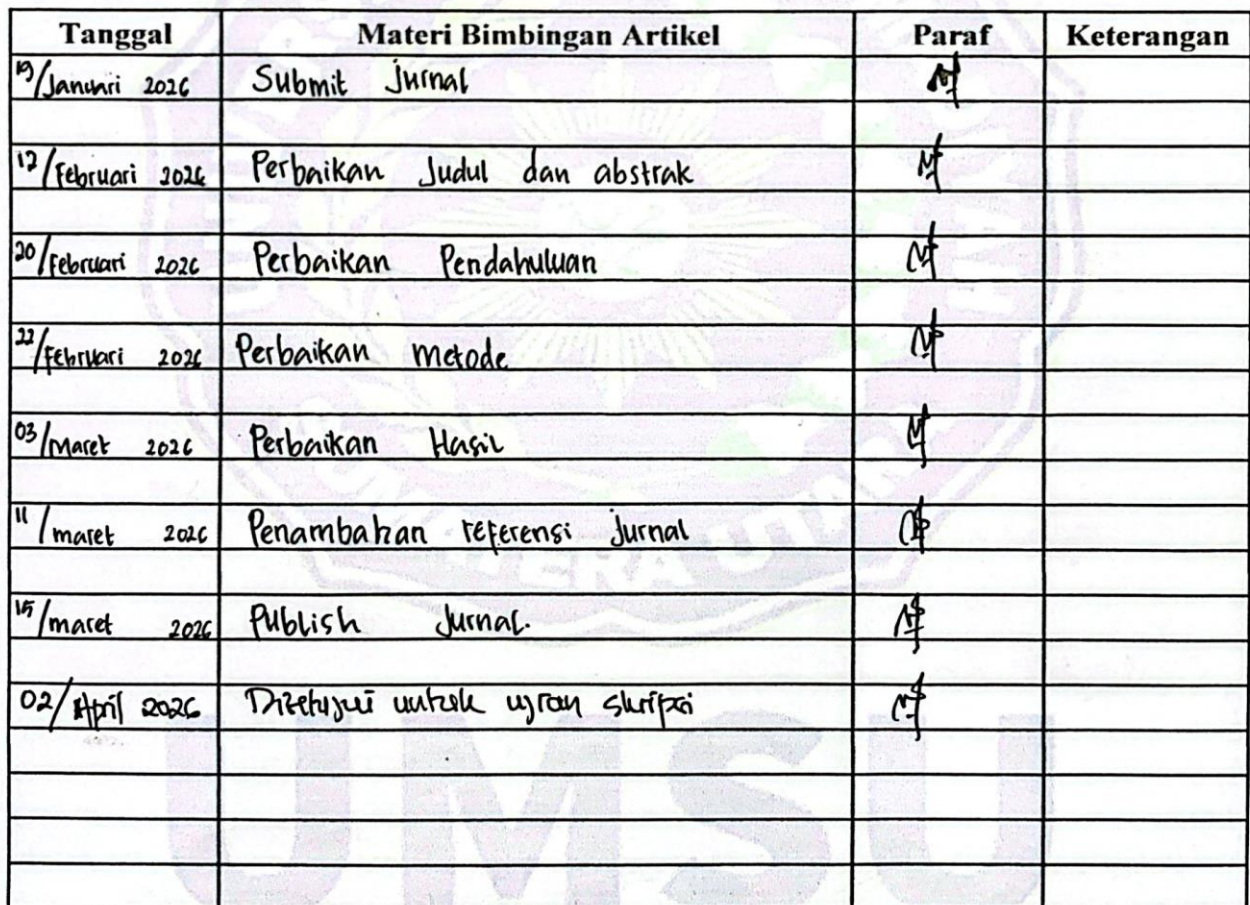 Tanggal Materi Bimbingan Artikel Paraf Keterangan
19/Januari 2026 Submit Jurnal
12/Februari 2026 Perbaikan Judul dan abstrak
20/Februari 2026 Perbaikan Pendahuluan
22/Februari 2026 Perbaikan metode
03/Maret 2026 Perbaikan Hasil
11/maret 2026 Penambahan referensi jurnal
15/maret 2026 Publish Jurnal.
02/April 2026 Disetujui untuk ujian skripsi
SUMATERA UTARA
UMSU